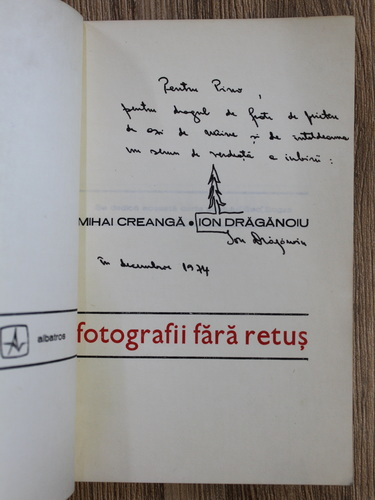 Pentru Pino,
pentru dragul de frate de
de azi de mâine și de întotdeauna
un semn de verdeață a iubirii:
MIHAI CREANGĂ • ION DRĂGĂNOIU
Ion Drăgănoiu
în decembrie 1974
albatros
fotografii fără retuș